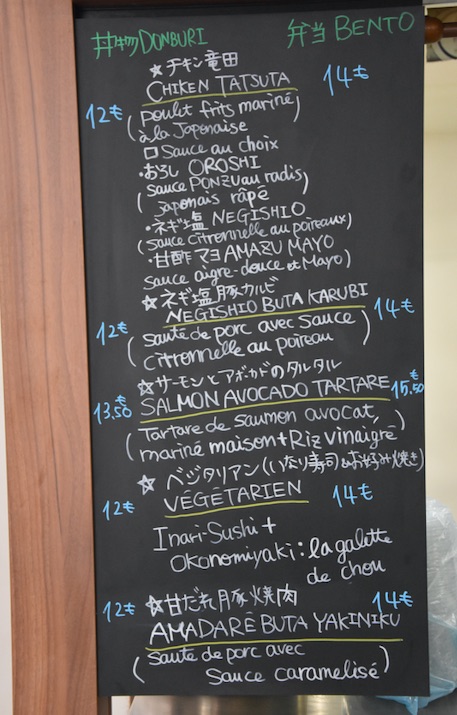 丼物 DONBURI 弁当 BENTO
☆チキン竜田
CHIKEN TATSUTA
12€ 14€
(poulit frits mariné)
à la Japonaise
□ Sauce au choix
・おろし OROSHI
(sauce PONZU au radis
Japonais râpé)
・ネギ塩 NEGISHIO
(sauce citronnelle au poireaux)
・甘酢マヨ AMAZU MAYO
(sauce aigre-douce et Mayo)
☆ネギ塩豚カルビ
NEGISHIO BUTA KARUBI
12€ 14€
(sauté de porc avec sauce
citronnelle au poireau)
☆サーモンとアボカドのタルタル
13.50€ SALMON AVOCADO TARTARE 15.50€
(Tartare de saumon avocat,
mariné maison + Riz vinaigré)
☆ベジタリアン(いなり寿司&お好み焼き)
VÉGÉTARIEN
12€ 14€
Inari-Sushi +
Okonomiyaki: la galette
de chou
12€ ☆甘だれ豚焼肉 14€
AMADARÉ BUTA YAKINIKU
(saute de porc avec
sauce caramelisé)